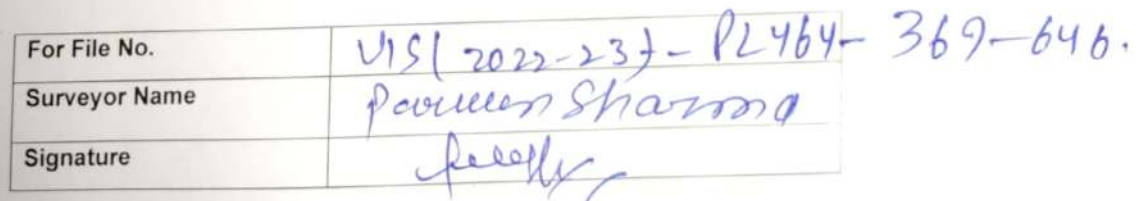 For File No. VIS(2022-23)-PL464-369-646.
Surveyor Name Parveen Sharma
Signature